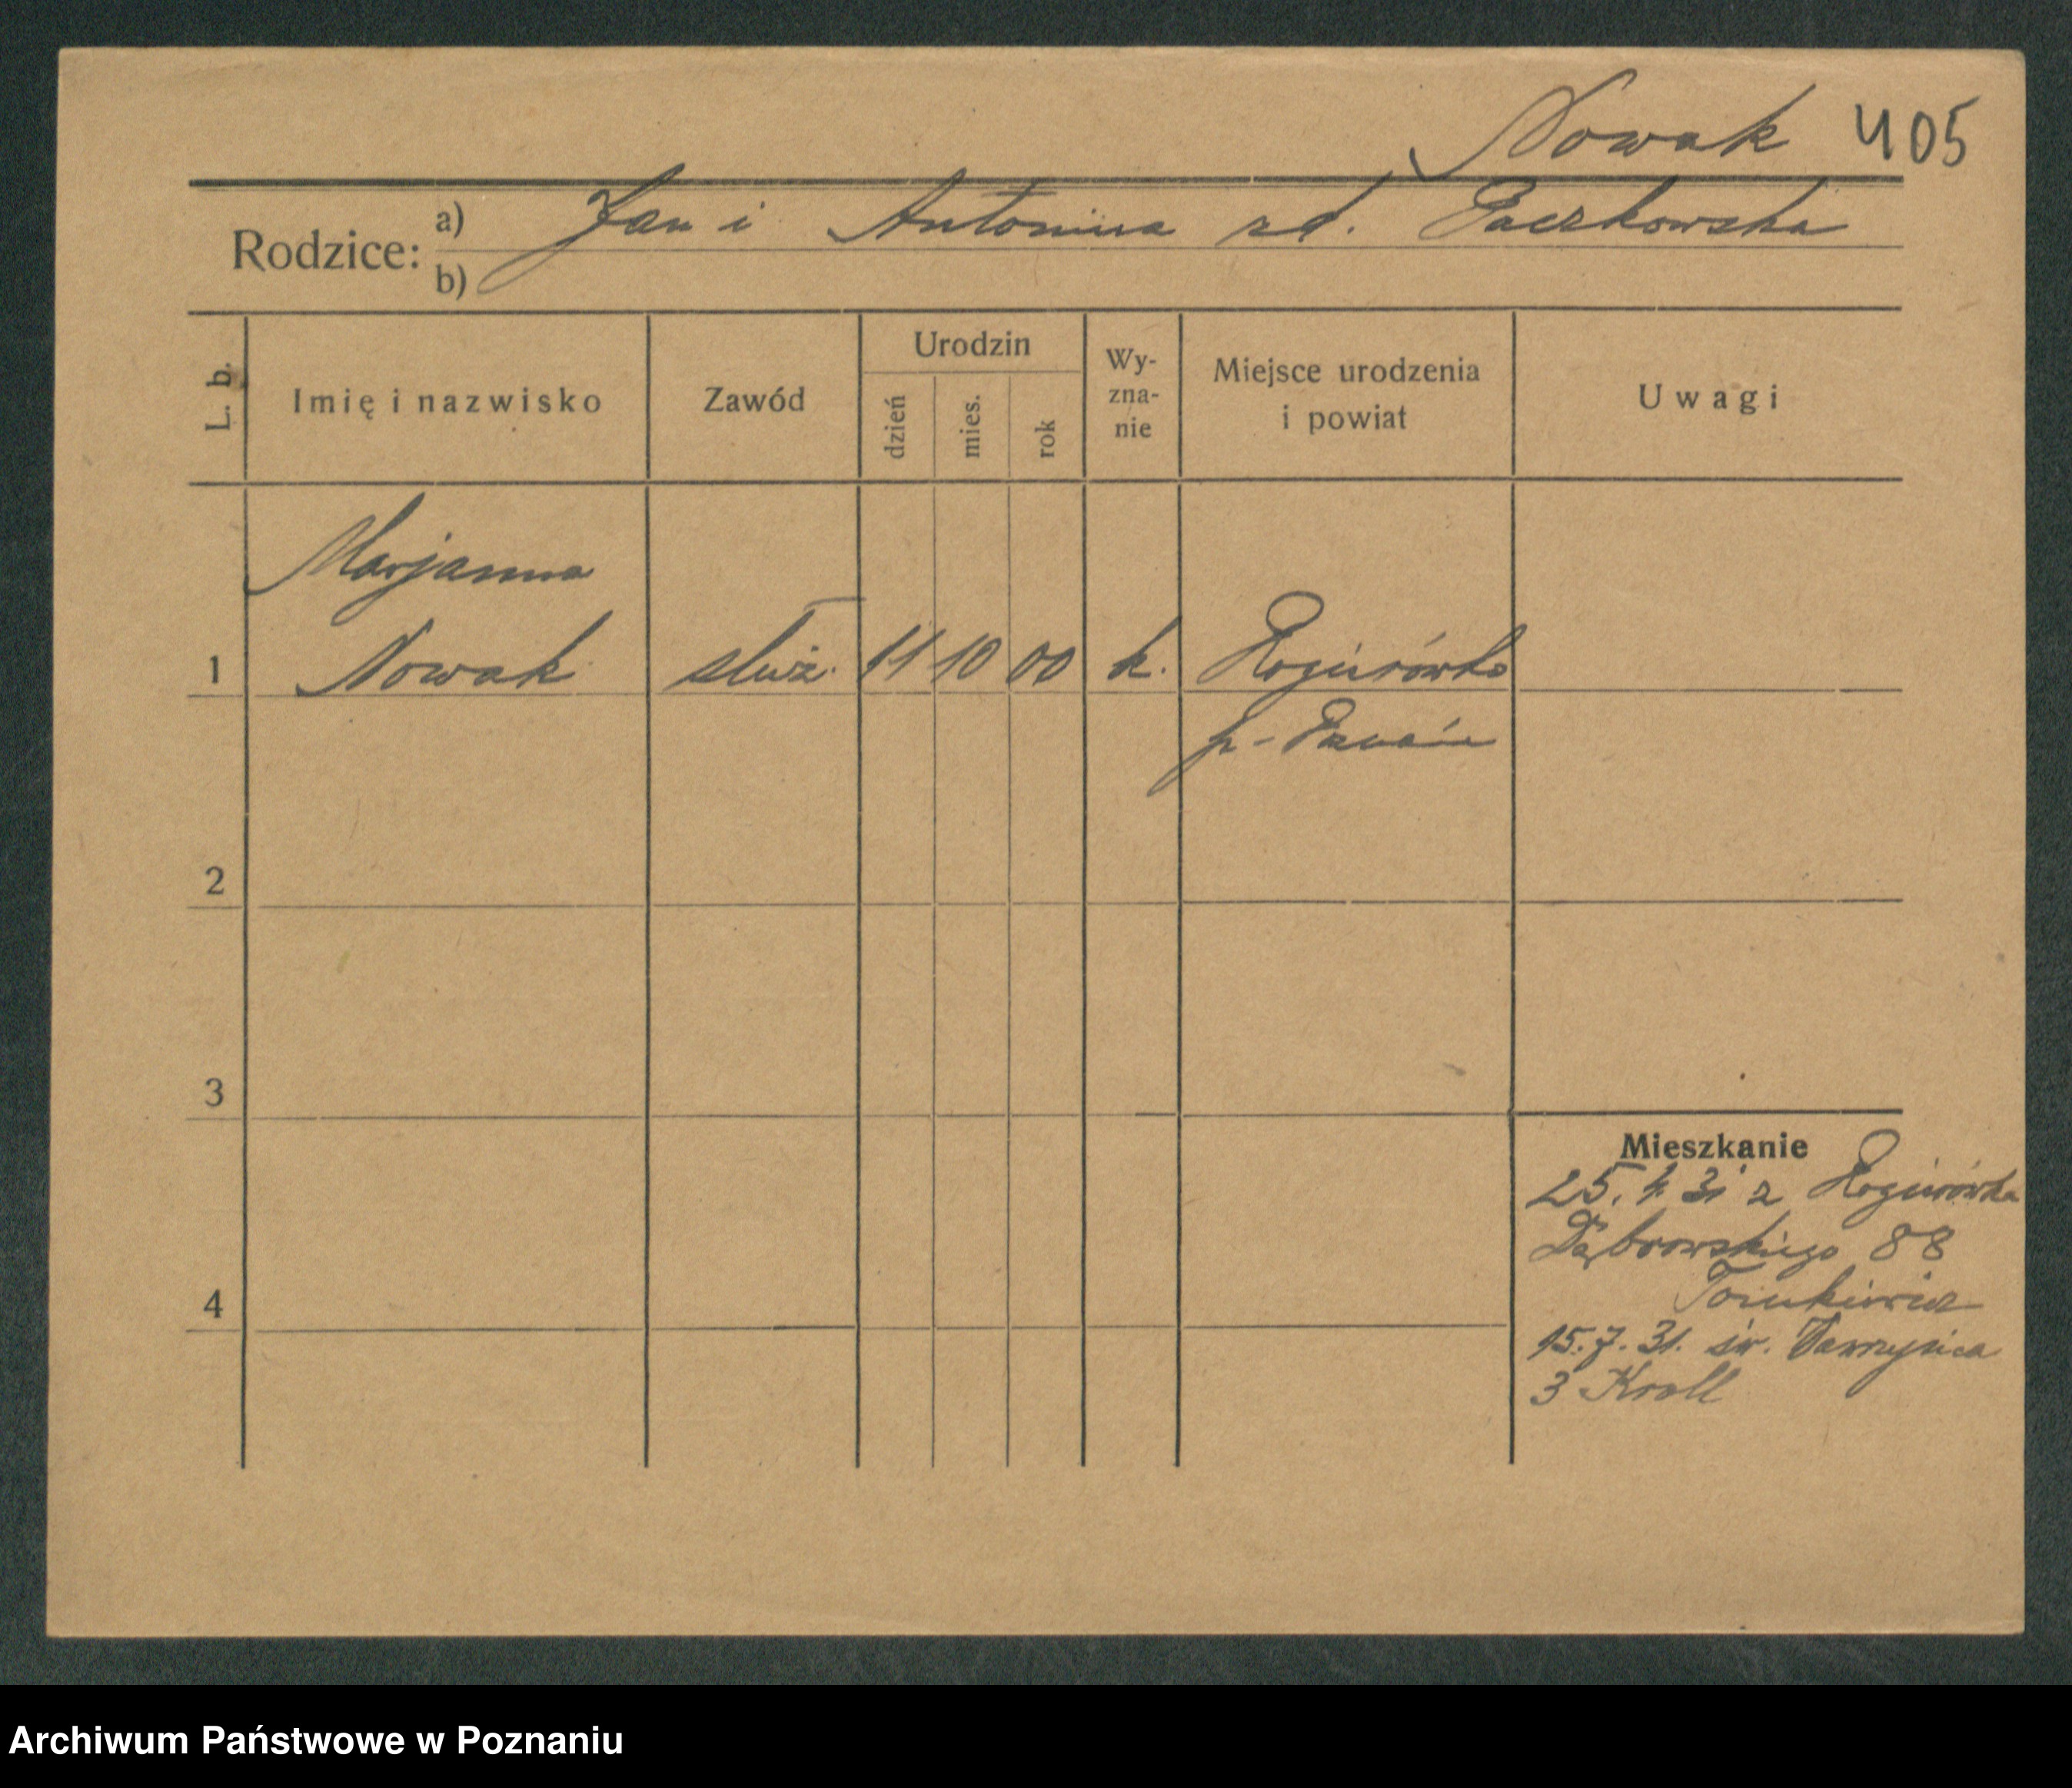 Nowak 405
Rodzice: a) Jan i Antonina zd. Paczkowska
b)
L. b. Imię i nazwisko Zawód Urodzin dzień mies. rok Wyznanie Miejsce urodzenia i powiat Uwagi
Marjanna
1 Nowak służ. 11 10 00 k.
p-Poznań
2
3
Mieszkanie
25. 4. 31 z
Dąbrowskiego 88
4
15. 7. 31. św. Wawrzyńca
3 Kroll
Archiwum Państwowe w Poznaniu